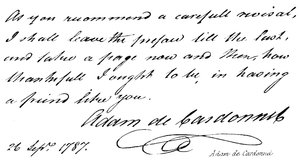 As you recommend a carefull revisal,
I shall leave the preface till the last,
and take a page now and then, how
thankfull I ought to be in having
a friend like you.
Adam de Cardonnel
26 Sepr. 1787.
Adam de Cardonnel